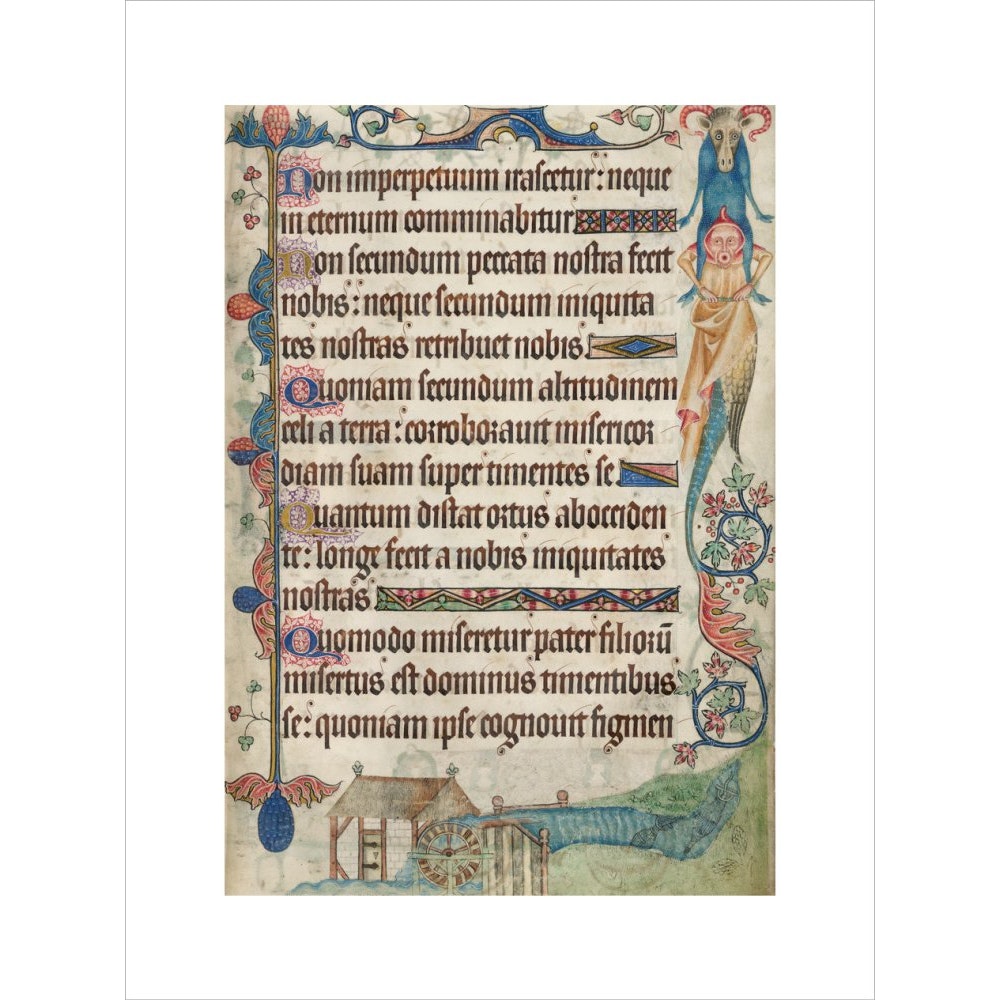 Non imperpetuum irascetur: neque
in eternum comminabitur
Non secundum peccata nostra fecit
nobis: neque secundum iniquita
tes nostras retribuet nobis
Quoniam secundum altitudinem
celi a terra: corroborauit misericor
diam suam super timentes se
Quantum distat ortus abocciden
te: longe fecit a nobis iniquitates
nostras
Quomodo miseretur pater filiorū
misertus est dominus timentibus
se: quoniam ipse cognouit figmen